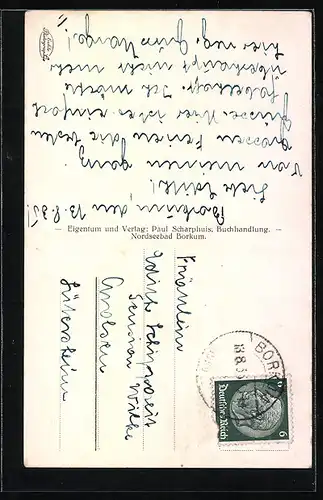 Borkum, den 13.8.35!
Liebe Edith!
Von meinen ganz
grossen Ferien die besten
Grüsse. Hier ist es einfach
fabelhaft. Ich möchte
überhaupt nicht mehr
hier weg.
— Eigentum und Verlag: Paul Scharphuis, Buchhandlung. —
Nordseebad Borkum.
Fräulein
Edith
Pension Wilke
Arolsen
BORKUM
13.8.35
Deutsches Reich
6